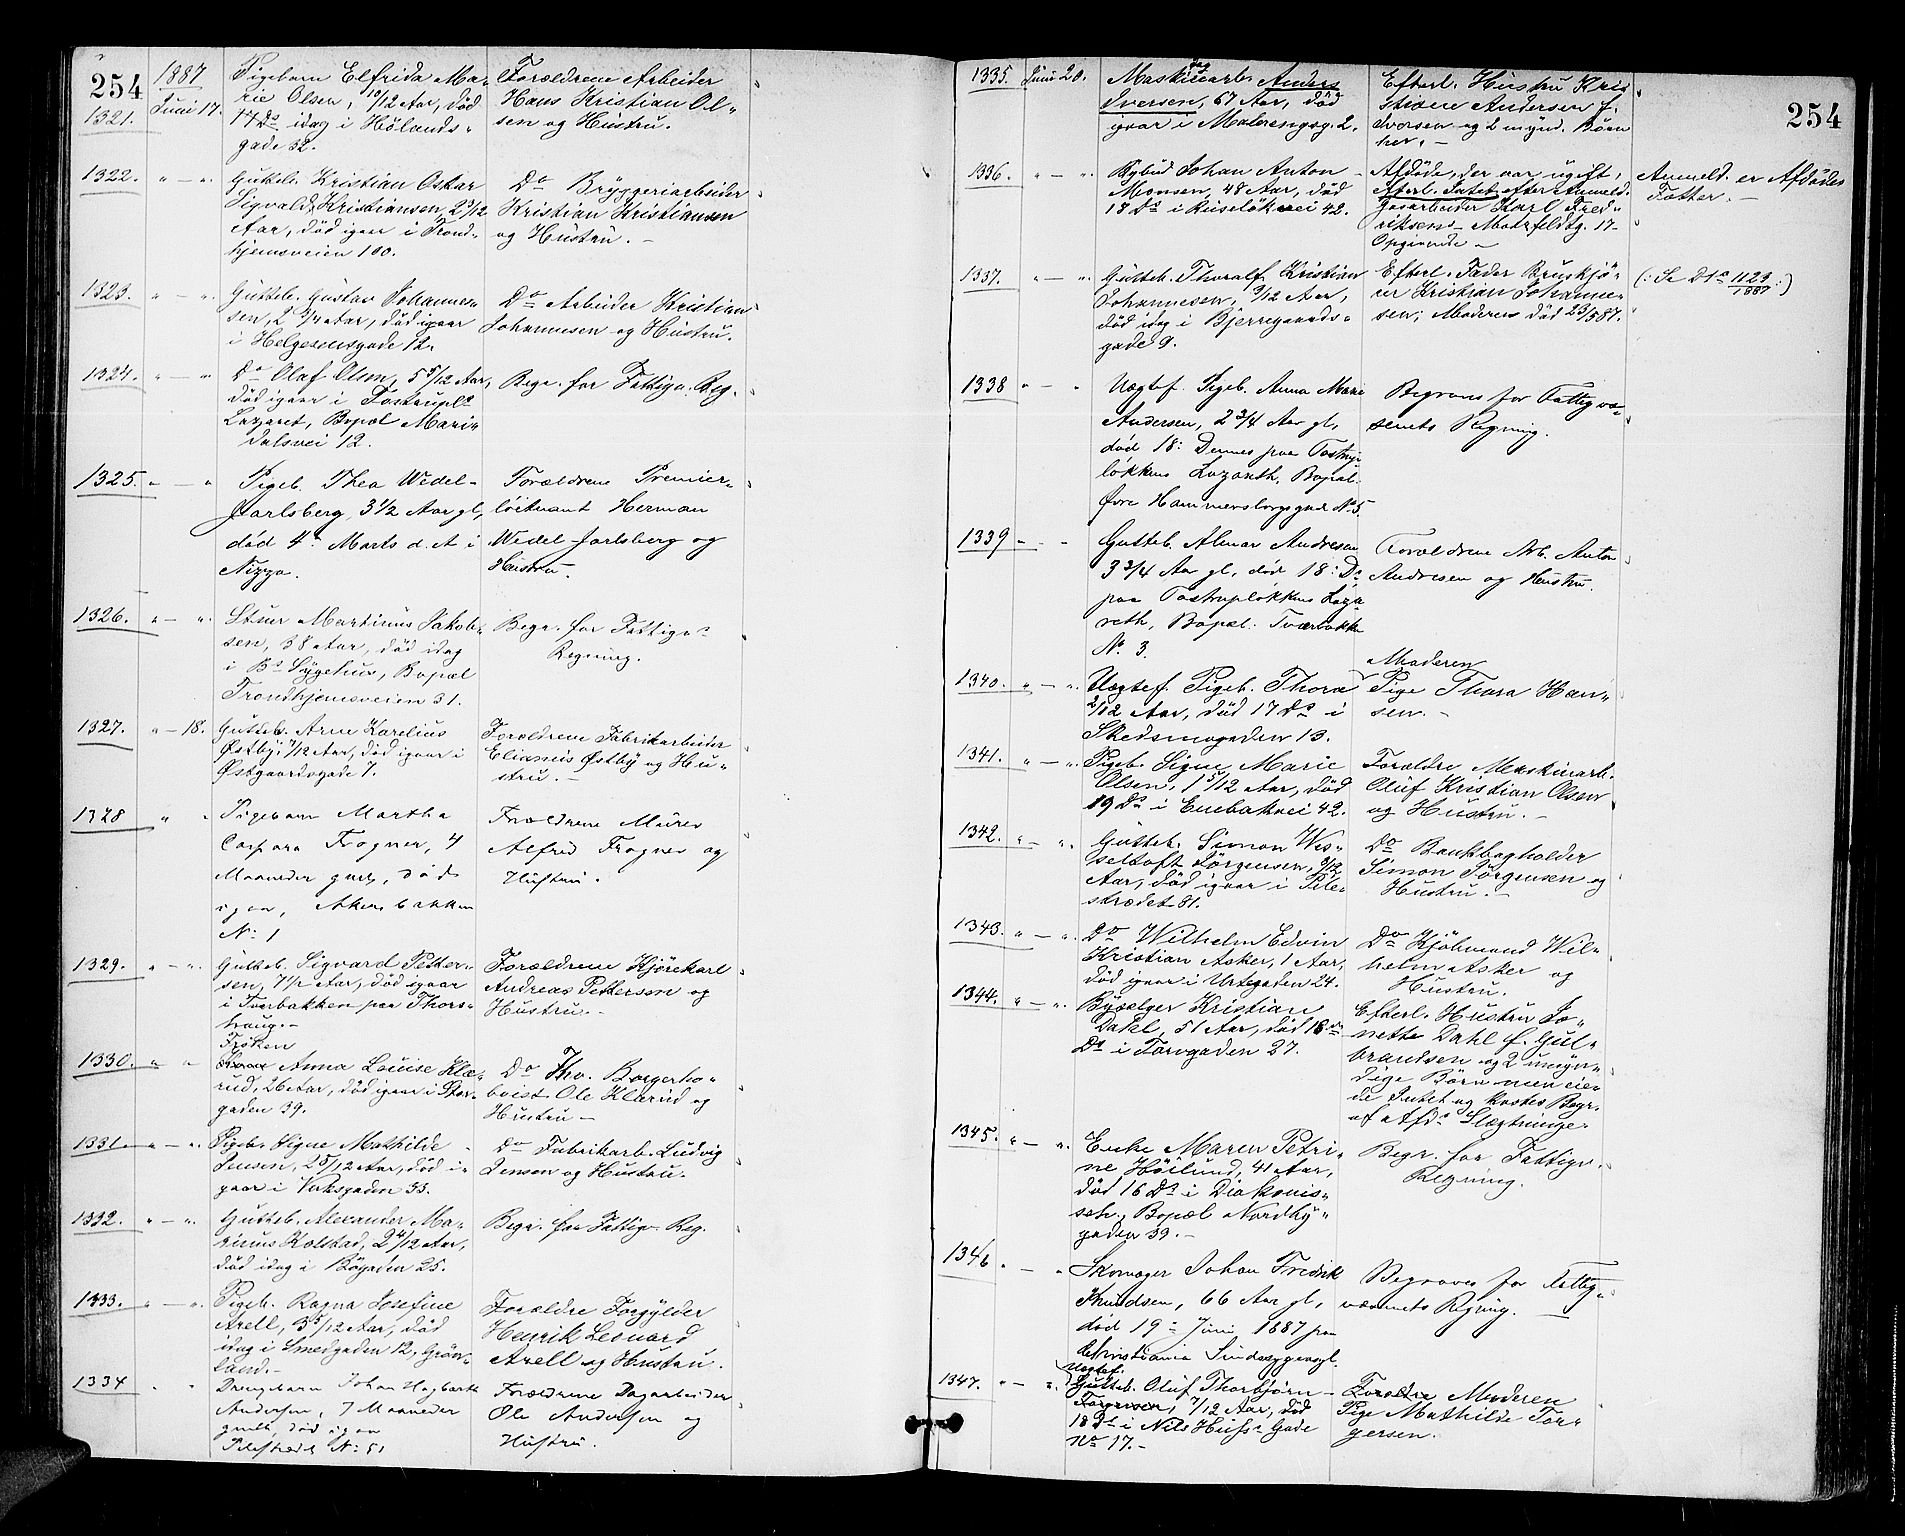 254
1887
1321. Juni 17.
Pigebarn Elfrida Ma-
rie Olsen, 10/12 Aar, död
17 Ds idag i Hölands-
gade 32.
Forældrene Arbeider
Hans Kristian Ol-
sen og Hustru.
1322. " — "
Gutteb. Kristian Oskar
Sigvald Kristiansen, 2 3/12
Aar, död igaar i Trond-
hjemsveien 100.
Do Bryggeriarbeider
Kristian Kristiansen
og Hustru. —
1323. " — "
Gutteb. Gustav Johanne-
sen, 2 3/4 Aar, död igaar
i Helgesensgade 12.
Do Arbeider Kristian
Johannesen og Hustru.
1324. " — "
Do Olaf Olsen, 5 9/12 Aar,
död igaar i Tostrupl.
Lazaret, Bopæl Mari-
dalsvei 12.
Begr. for Fattigv. Reg.
1325. " — "
Pigeb. Thea Wedel-
Jarlsberg, 3 1/2 Aar gl,
död 4de Marts d. A. i
Nizza.
Forældrene Premier-
löitnant Herman
Wedel-Jarlsberg og
Hustru.
1326. " — "
Stuer Martinus Jakob-
sen, 38 Aar, död idag
i Bs Sygehus, Bopæl
Trondhjemsveien 31.
Begr. for Fattigvs
Regning.
1327. " — 18.
Gutteb. Arne Karelius
Østby, 7/12 Aar, död igaar i
Østgaardsgade 7.
Forældrene Fabrikarbeider
Elianus Østby og Hu-
stru. —
1328 " "
Pigebarn Martha
Caspara Frogner, 4
Maaneder gml, död
igaar, Akersbakken
No 1
Forældrene Murer
Alfred Frogner og
Hustru.
1329. " — "
Gutteb. Sigvard Petter-
sen, 7 1/2 Aar, död igaar
i Tverbakken paa Thors-
haug. —
Forældrene Kjörekarl
Andreas Pettersen og
Hustru. —
1330. " "
Fröken
Anna Louise Klæ-
rud, 26 Aar, död igaar i Stor-
gaden 39.
Do Fhv. Borgerho-
boist Ole Klærud og
Hustru —
1331. " — "
Pigeb. Signe Mathilde
Jensen, 2 5/12 Aar, död i-
gaar i Vaksgaden 33.
Do Fabrikarb. Ludvig
Jensen og Hustru.
1332. " — "
Gutteb. Alexander Ma-
rinius Kolstad, 2 4/12 Aar,
död idag i Böigaden 25.
Begr. for Fattigv. Reg.
1333. " — "
Pigeb. Ragna Josefine
Arell, 3 5/12 Aar, död
idag i Smedgaden 12, Grön-
land. —
Forældre Forgylder
Henrik Leonard
Arell og Hustru.
1334 " "
Drengebarn Johan Hagbarth
Andersen, 7 Maaneder
gmlt, död igaar
Pilestrædet No 51
Forældrene Dagarbeider
Ole Andersen og
Hustru.
254
1335. Juni 20.
Maskinarb. Anders
Iversen, 67 Aar, död
igaar i Malerengsg. 2.
Efterl. Hustru Kris
stiane Andersen f.
Iversen og 2 mynd. Børn
her. —
1336. " — "
Bybud Johan Anton
Monsen, 48 Aar, död
18 Ds i Ruselökvei 42.
Afdøde, der var ugift,
Efterl. Intet efter Anmeld.
Gasarbeider Karl Fred-
riksens Motzfeldtg. 17
Opgivende —
Anmeld. er Afdødes
Fætter. —
1337. " — "
Gutteb. Thoralf Kristian
Johannesen, 3/12 Aar,
död idag i Bjerregaards-
gade 9.
Efterl. Fader Bruskjö-
rer Kristian Johanne-
sen; Moderen död 23/3 87.
(: Se D.N. 1123/1887 :)
1338 " — "
Uægtef. Pigeb. Anna Marie
Andersen, 2 3/4 Aar gl,
död 18: Dennes paa Tostrup-
løkkens Lazareth, Bopæl:
Øvre Hammersborggade No 5.
Begraves for Fattigvæ-
senets Regning.
1339 " — "
Gutteb. Almar Andresen
3 3/4 Aar gl, död 18: Ds
paa Tostrupløkkens Laza-
reth, Bopæl: Tværbakken
No 3.
Forældrene Arb. Anton
Andresen og Hustru.
1340. " — "
Uægtef. Pigeb. Thora
2/12 Aar, död 17 Ds i
Skedsmogaden 13.
Moderen
Pige Thora Han-
sen. —
1341. " — "
Pigeb. Signe Marie
Olsen, 1 5/12 Aar, död
19 Ds i Enebakvei 42.
Forældre Maskinarb.
Oluf Kristian Olsen
og Hustru. —
1342. " — "
Gutteb. Simon Wes-
seltoft Jörgensen, 9/12
Aar, död igaar i Pile-
strædet 81.
Do Bankbogholder
Simon Jörgensen og
Hustru. —
1343. " — "
Do Wilhelm Edvin
Kristian Asker, 1 Aar,
död igaar i Urtegaden 24.
Do Kjöbmand Wil-
helm Asker og
Hustru.
1344. " — "
Byselger Kristian
Dahl, 51 Aar, död 18de
Ds i Torvgaden 27.
Efterl. Hustru Jo-
nette Dahl f. Gul-
brandsen og 2 umyn-
dige Børn men eie-
de Intet og kostes Begr.
af Afds Slægtninge.
1345. " — "
Enke Maren Petri-
ne Höilund, 41 Aar,
död 16 Ds i Diakonis-
seh., Bopæl Nordby-
gaden 39. —
Begr. for Fattigv.
Regning.
1346 " — "
Skomager Johan Fredrik
Knudsen, 66 Aar gl,
død 19de Juni 1887 paa
Christiania Sindssygeasyl.
Begraves for Fattig-
væsenets Regning.
1347. " — "
Uægtef.
Gutteb. Oluf Thorbjörn
Torgersen, 7/12 Aar, död
18 Ds i Nils Huss Gade
No 17. —
Forældre Moderen
Pige Mathilde Tor-
gersen.